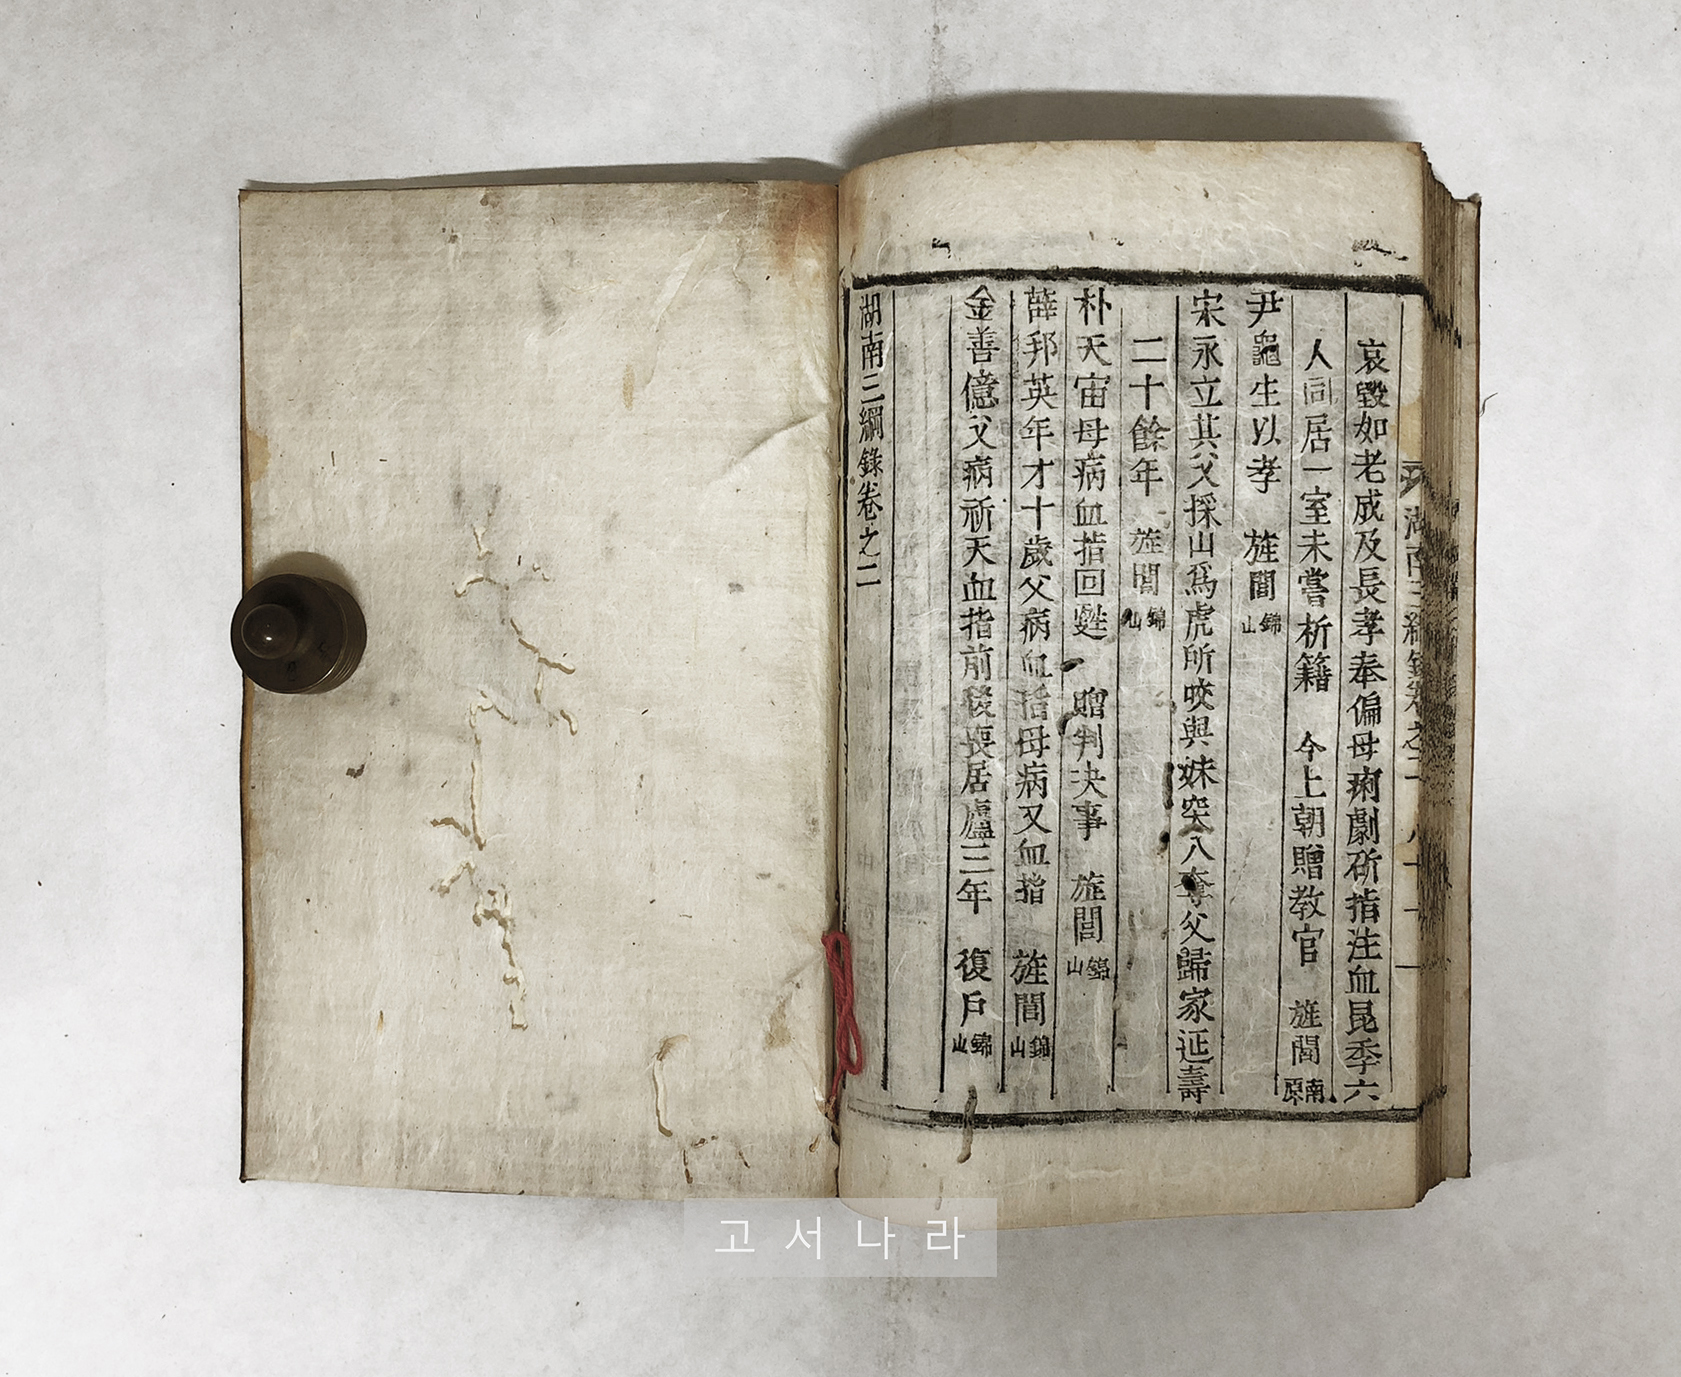 哀毀如老成及長孝奉偏母痢劇斫指注血昆季六
人同居一室未嘗析籍 今上朝贈教官 旌閭南原
尹龜生以孝 旌閭錦山
宋永立其父採山爲虎所咬與妹突入奪父歸家延壽
二十餘年 旌閭錦山
朴天宙母病血指回甦 贈判决事 旌閭錦山
薛邦英年才十歲父病血指母病又血指 旌閭錦山
金善億父病祈天血指前後喪居廬三年 復戶錦山
湖南三綱錄卷之二
고서나라